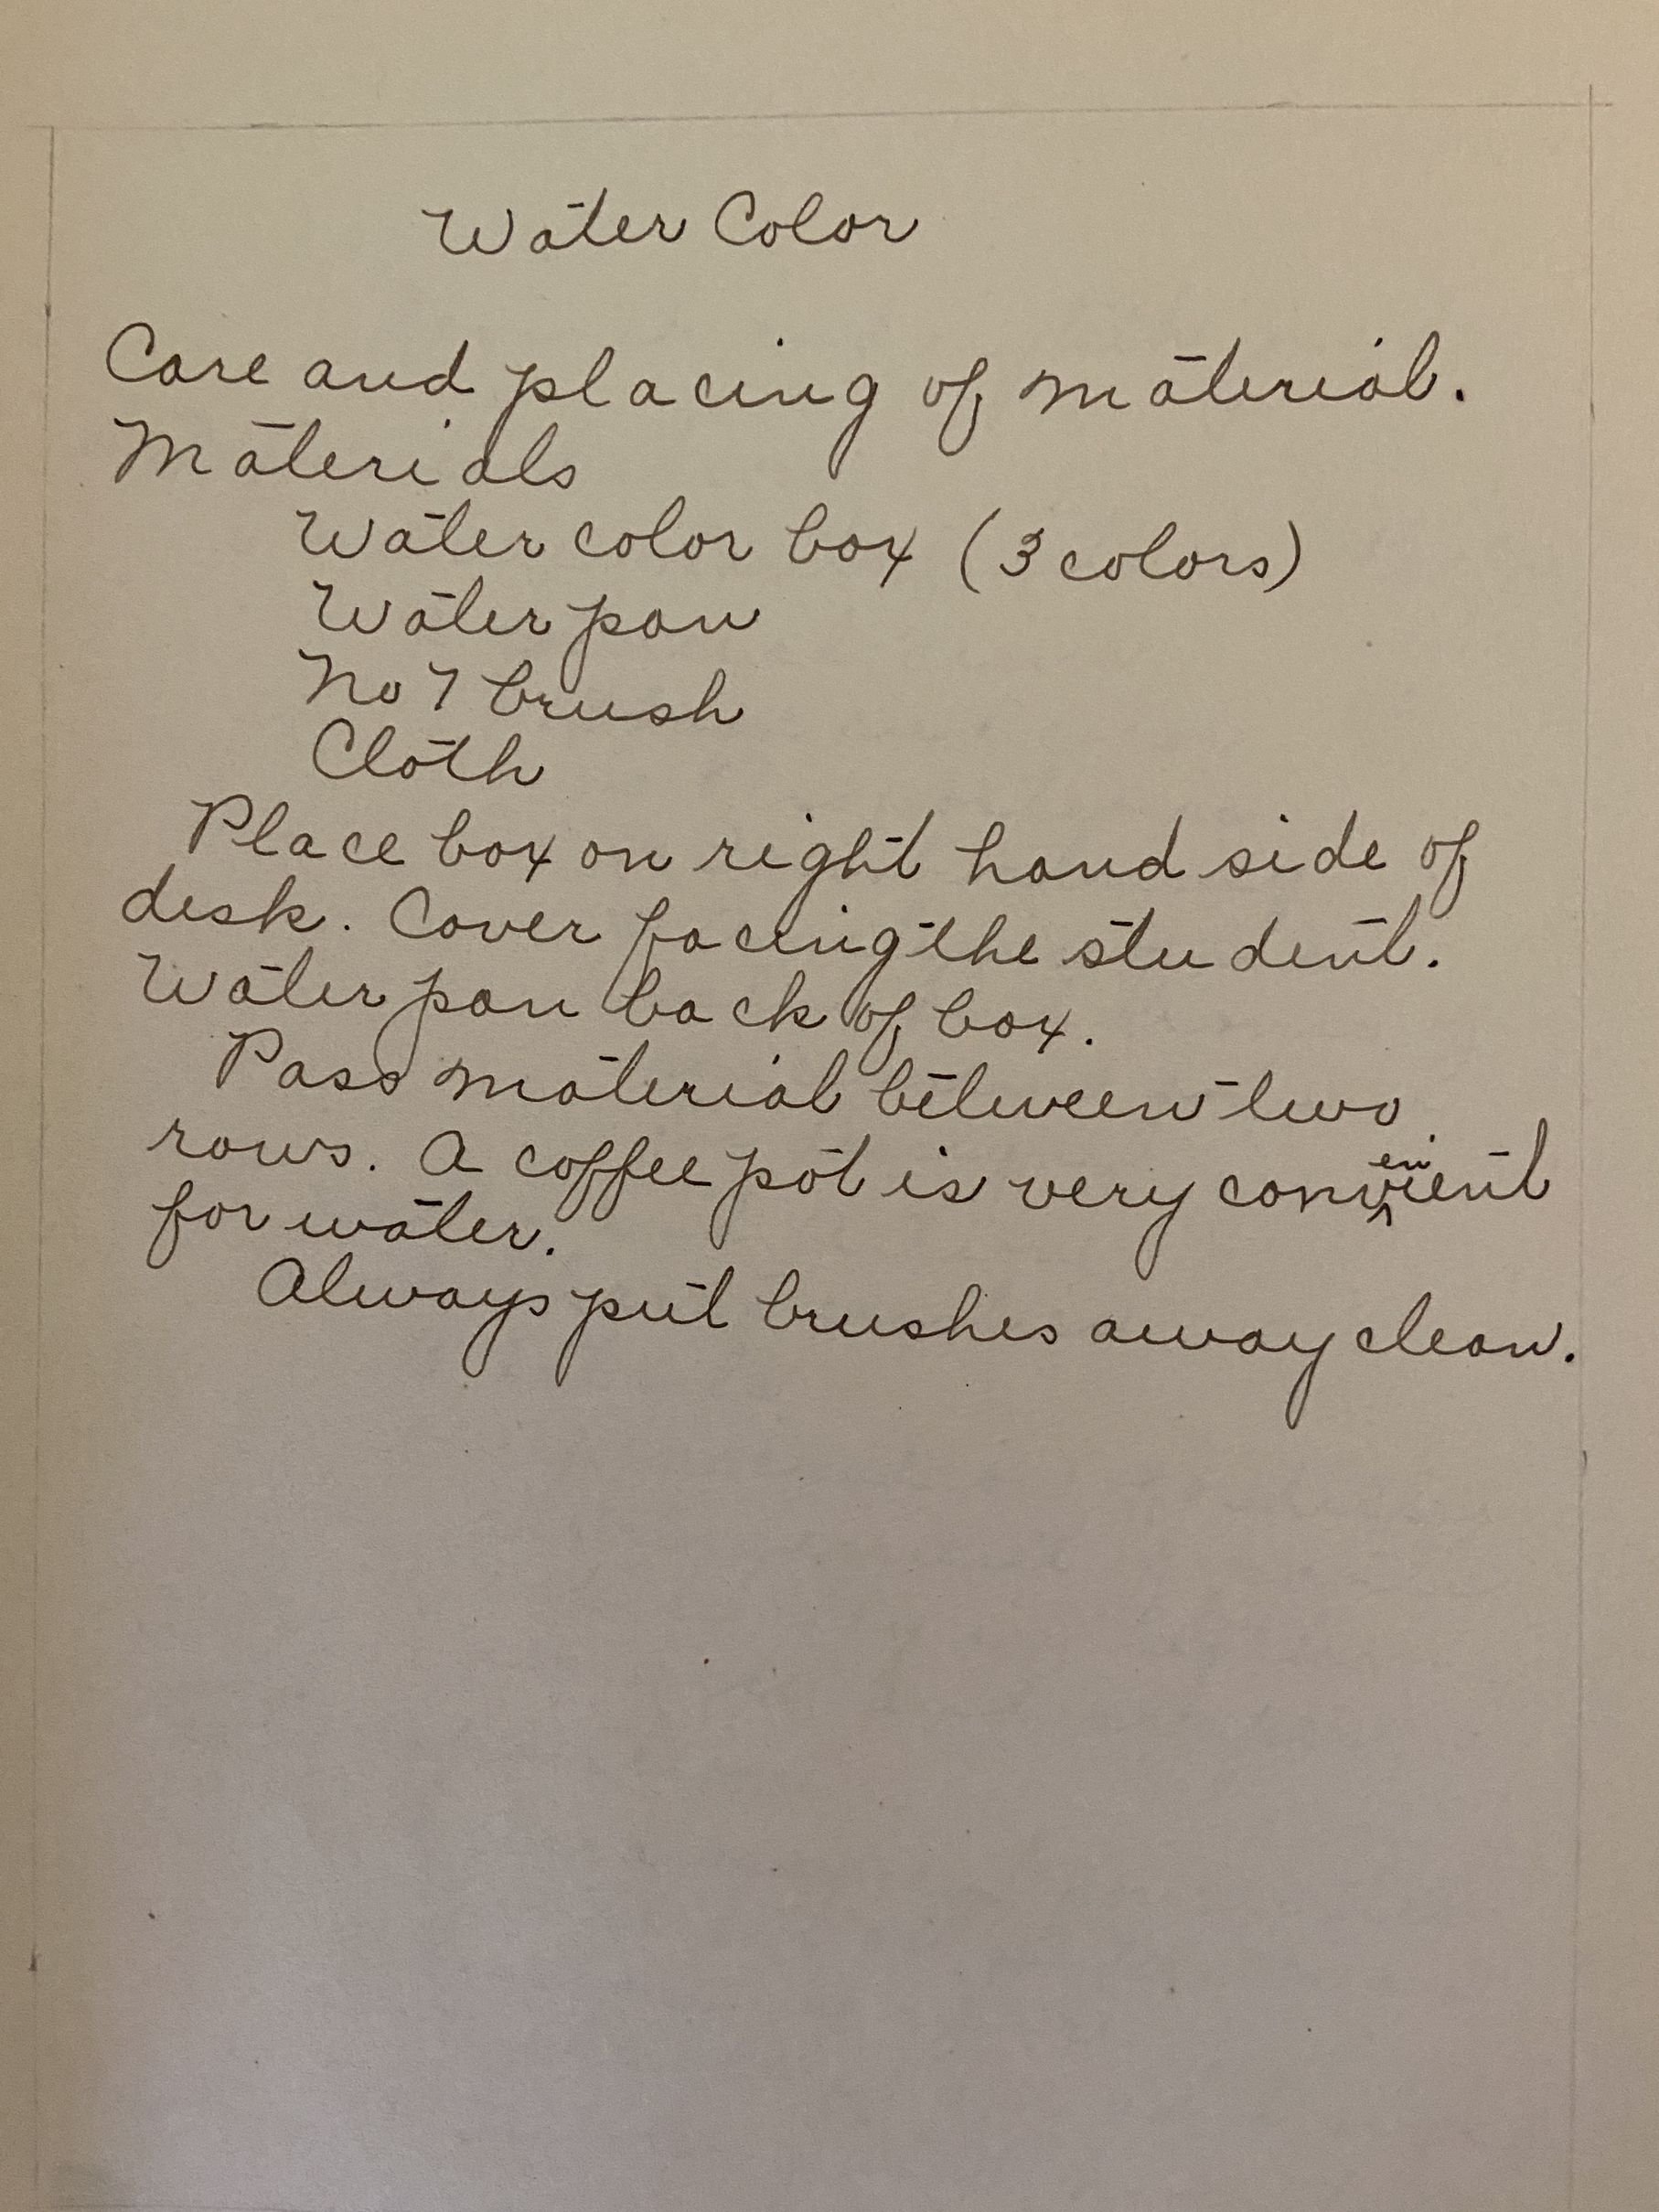 Water Color
Care and placing of material.
Materials
Water color box (3 colors)
Water pan
No 7 brush
Cloth
Place box on right hand side of
desk. Cover facing the student.
Water pan back of box.
Pass material between two
rows. A coffee pot is very convenient
for water.
Always put brushes away clean.